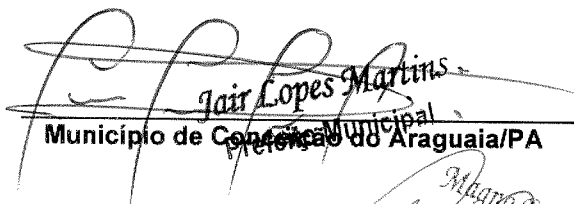 Jair Lopes Martins
Prefeito Municipal
Município de Conceição do Araguaia/PA
Magno